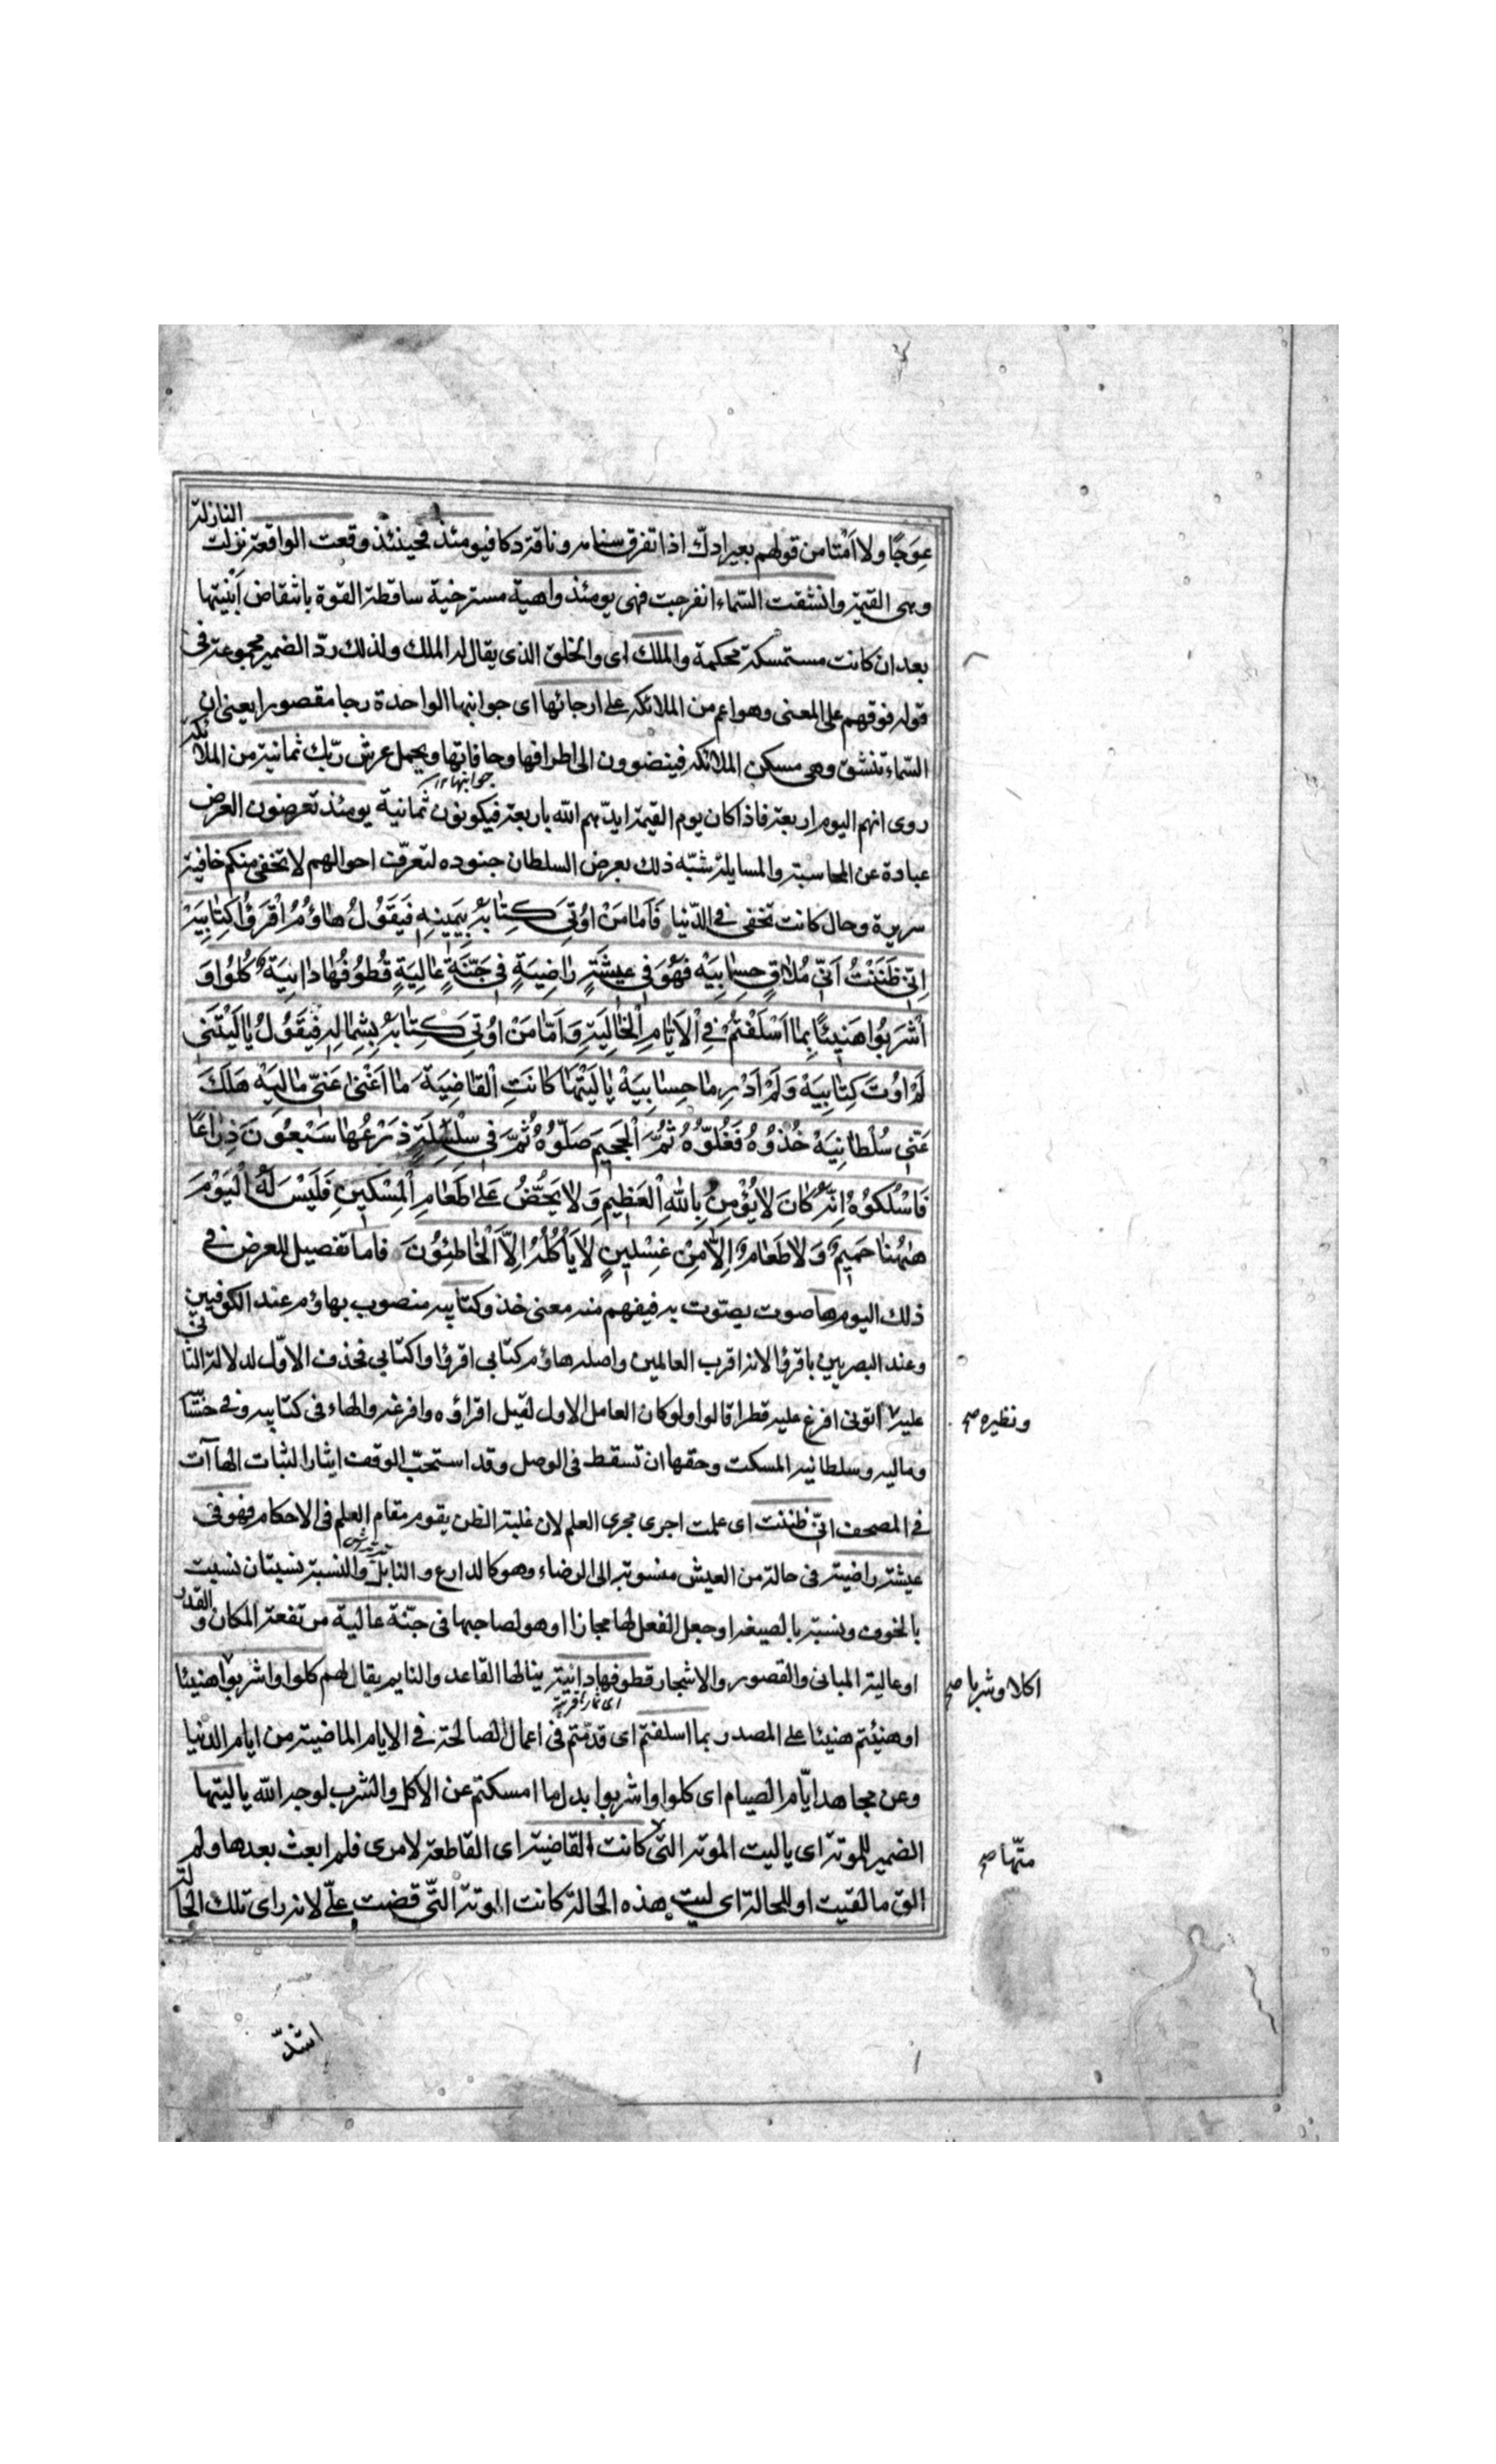 عِوَجًا ولا اَمْتا من قولهم بعير ادكّ اذا تفرق سنامه وناقة دكا فيومئذ فحينئذ وقعت الواقعة نزلت النازلة
وهى القيمة وانشقت السّماء انفرجت فهى يومئذ واهية مسترخية ساقطة القوة بانتقاض اَبْنيتها
بعد ان كانت مستمسكة محكمة والملك اى والخلق الذى يقال له الملك ولذلك ردّ الضمير مجموعة فى
قوله فوقهم على المعنى وهو اعم من الملائكه على ارجائها اى جوانبها الواحدة رجا مقصورا يعنى ان
السّماء تنشق وهى مسكن الملائكه فينضوون الى اطرافها وحافاتها ويحمل عرش ربّك ثمانية من الملائكة
جوانبها ١٢
روى انهم اليوم اربعة فاذا كان يوم القيمة ايدّهم الله باربعة فيكونون ثمانية يومئذ تعرضون العرض
عبادة عن المحاسبة والمسايلة شبّه ذلك بعرض السلطان جنوده لتعرّف احوالهم لا تخفى منكم خافية
سريرة وحال كانت تخفى فى الدّنيا فَاَمَّا مَنْ اُوتِىَ كِتٰابَهُ بِيَمِينِهٖ فَيَقُولُ هاؤُمُ اقْرَؤُا كِتابِيَهْ
اِنّى ظَنَنْتُ اَنّى مُلاقٍ حِسابِيَهْ فَهُوَ فى عيشَةٍ راضِيَةٍ فى جَنَّةٍ عالِيَةٍ قُطُوفُها دانِيَةٌ كُلُوا وَ
اشْرَبُوا هَنيئًا بِما اَسْلَفْتُمْ فِى الْاَيّامِ الْخالِيَةِ وَاَمّا مَنْ اُوتِىَ كِتابَهُ بِشِمالِهِ فَيَقُولُ يا لَيْتَنى
لَمْ اُوتَ كِتابِيَهْ وَلَمْ اَدْرِ ما حِسابِيَهْ يا لَيْتَها كانَتِ الْقاضِيَةَ ما اَغْنى عَنّى مالِيَهْ هَلَكَ
عَنّى سُلْطانِيَهْ خُذُوهُ فَغُلُّوهُ ثُمَّ الْجَحيمَ صَلُّوهُ ثُمَّ فى سِلْسِلَةٍ ذَرْعُها سَبْعُونَ ذِراعًا
فَاسْلُكُوهُ اِنَّهُ كانَ لا يُؤْمِنُ بِاللّهِ الْعَظيمِ وَلا يَحُضُّ عَلى طَعامِ الْمِسْكينِ فَلَيْسَ لَهُ الْيَوْمَ
هٰهُنا حَميمٌ وَلا طَعامٌ اِلّا مِنْ غِسْلينٍ لا يَأْكُلُهُ اِلَّا الْخاطِئُونَ فاما تفصيل للعرض فى
ذلك اليوم ها صوت يصّوت به فيفهم منه معنى خذ وكتابيه منصوب بهاؤم عند الكوفيين
وعند البصريين باقرؤا لانه اقرب العاملين واصله هاؤم كتابى اقرؤا واكتابى فحذف الاوّل لدلالة الثانى
عليه اٰتونى افرغ عليه قطرا قالوا ولو كان العامل الاول لقيل اقراؤه وافرغه والهاء فى كتابيه وفى حسا
ونظيره صح
وماليه وسلطانيه للسكت وحقها ان تسقط فى الوصل وقد استحبّ الوقف ايثارا لثبات الهاآت
فى المصحف انّى ظننت اى علمت اجرى مجرى العلم لان غلبة الظن يقوم مقام العلم فى الاحكام فهو فى
عيشة راضية فى حالة من العيش منسوبة الى الرضاء وهو كالدارع والنابل والنسبة نسبتان نسبت
بالحروف ونسبة بالصيغه او جعل الفعل لها مجازا وهو لصاحبها فى جنّة عالية مرتفعة المكان و القدر
او عالية المبانى والقصور والاشجار قطوفها دانية ينالها القاعد والنايم يقال لهم كلوا واشربوا هنيئا
اكلا وشربا صح
او هنيئتم هنيئا على المصدر بما اسلفتم اى قدمتم فى اعمال الصالحة فى الايام الماضية من ايام الدنيا
وعن مجاهد ايّام الصيام اى كلوا واشربوا بدل ما امسكتم عن الاكل والشرب لوجه الله يا ليتها
الضمير للموتة اى يا ليت الموتة التى كانت القاضية اى القاطعة لامرى فلم ابعث بعدها ولم
متّها صح
الق ما لقيت او للحالة اى ليت هذه الحالة كانت الموتة التّى قضت علّى لانه راى تلك الحالة
اشدّ